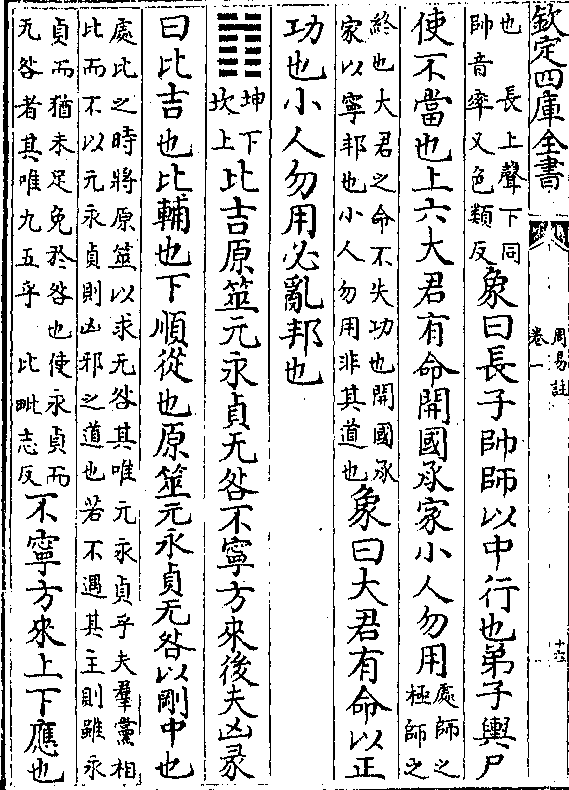 欽定四庫全書
周易註
卷一
十六
也長上聲下同
帥音率又色類反
象曰長子帥師以中行也弟子輿尸
使不當也上六大君有命開國承家小人勿用
處師之
極師之
終也大君之命不失功也開國承
家以寧邦也小人勿用非其道也
象曰大君有命以正
功也小人勿用必亂邦也
䷇
坤下
坎上
比吉原筮元永貞无咎不寧方來後夫凶彖
曰比吉也比輔也下順從也原筮元永貞无咎以剛中也
處比之時將原筮以求无咎其唯元永貞乎夫羣黨相
比而不以元永貞則凶邪之道也若不遇其主則雖永
貞而猶未足免於咎也使永貞而
无咎者其唯九五乎 比毗志反
不寧方來上下應也